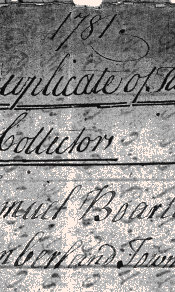 1781.
uplicate of Ta
Collectors
muel Boart
mberland Town